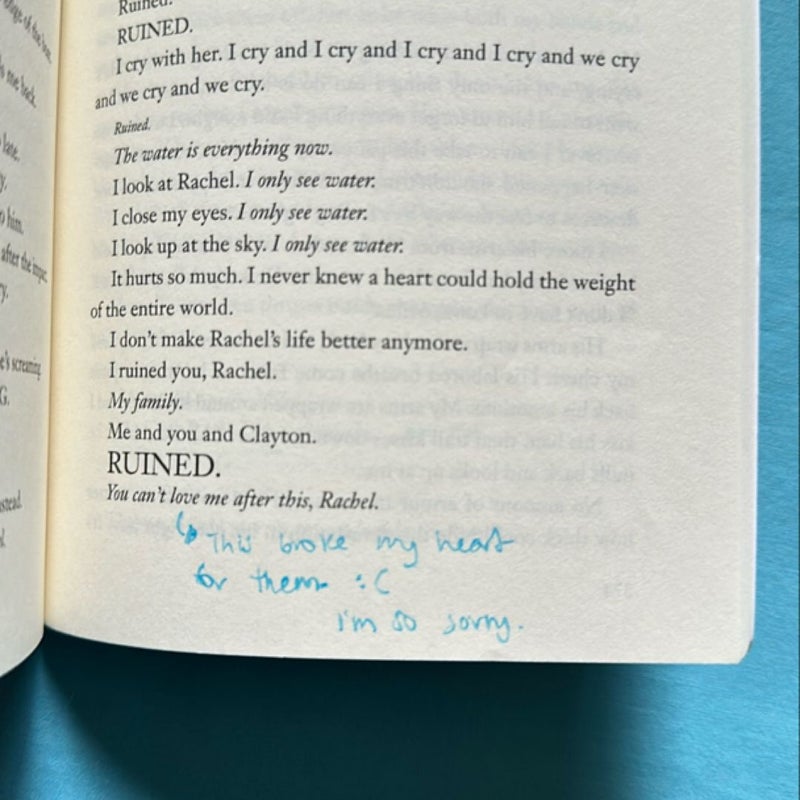 Ruined.
RUINED.
I cry with her. I cry and I cry and I cry and I cry and we cry
and we cry and we cry.
Ruined.
The water is everything now.
I look at Rachel. I only see water.
I close my eyes. I only see water.
I look up at the sky. I only see water.
It hurts so much. I never knew a heart could hold the weight
of the entire world.
I don't make Rachel's life better anymore.
I ruined you, Rachel.
My family.
Me and you and Clayton.
RUINED.
You can't love me after this, Rachel.
This broke my heart
for them :(
I'm so sorry.